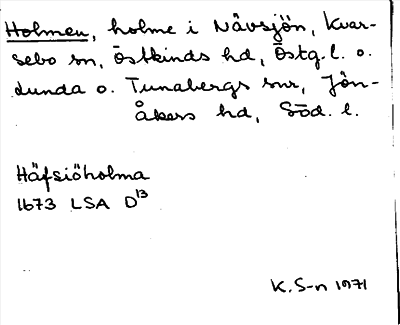 Holmen, holme i Nävsjön, Kvar-
sebo sn, Östkinds hd, Östg. l. o.
Lunda o. Tunabergs snr, Jön-
åkers hd, Söd. l.
Häfsiöholma
1673 LSA D13
K. S-n 1971